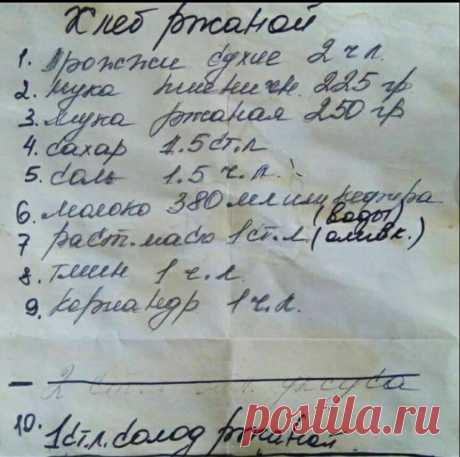 Хлеб ржаной
1. Дрожжи сухие 2 ч л.
2. мука пшеничн. 225 гр
3. мука ржаная 250 гр
4. сахар 1.5 ст. л
5. соль 1.5 ч. л.
6. молоко 380 мл или кефира
(воды)
7 раст. масло 1 ст. л (оливк.)
8. тмин 1 ч. л.
9. кориандр 1 ч. л.
2 ст. уксуса
10. 1 ст. л. солод ржаной
postila.ru